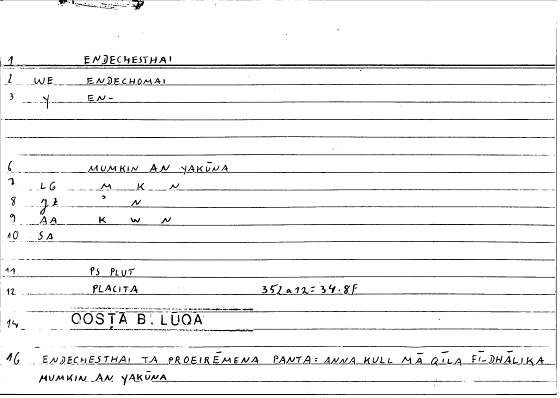 1 ENDECHESTHAI
2 WE ENDECHOMAI
3 Y EN-
6 MUMKIN AN YAKŪNA
7 LG M K N
8 ʾ N
9 AA K W N
10 SA
11 PS PLUT
12 PLACITA 352a12=34.8F
14 QOSṬĀ B. LŪQĀ
16 ENDECHESTHAI TA PROEIRĒMENA PANTA: ANNA KULL MĀ QĪLA FĪ-DHĀLIKA
MUMKIN AN YAKŪNA